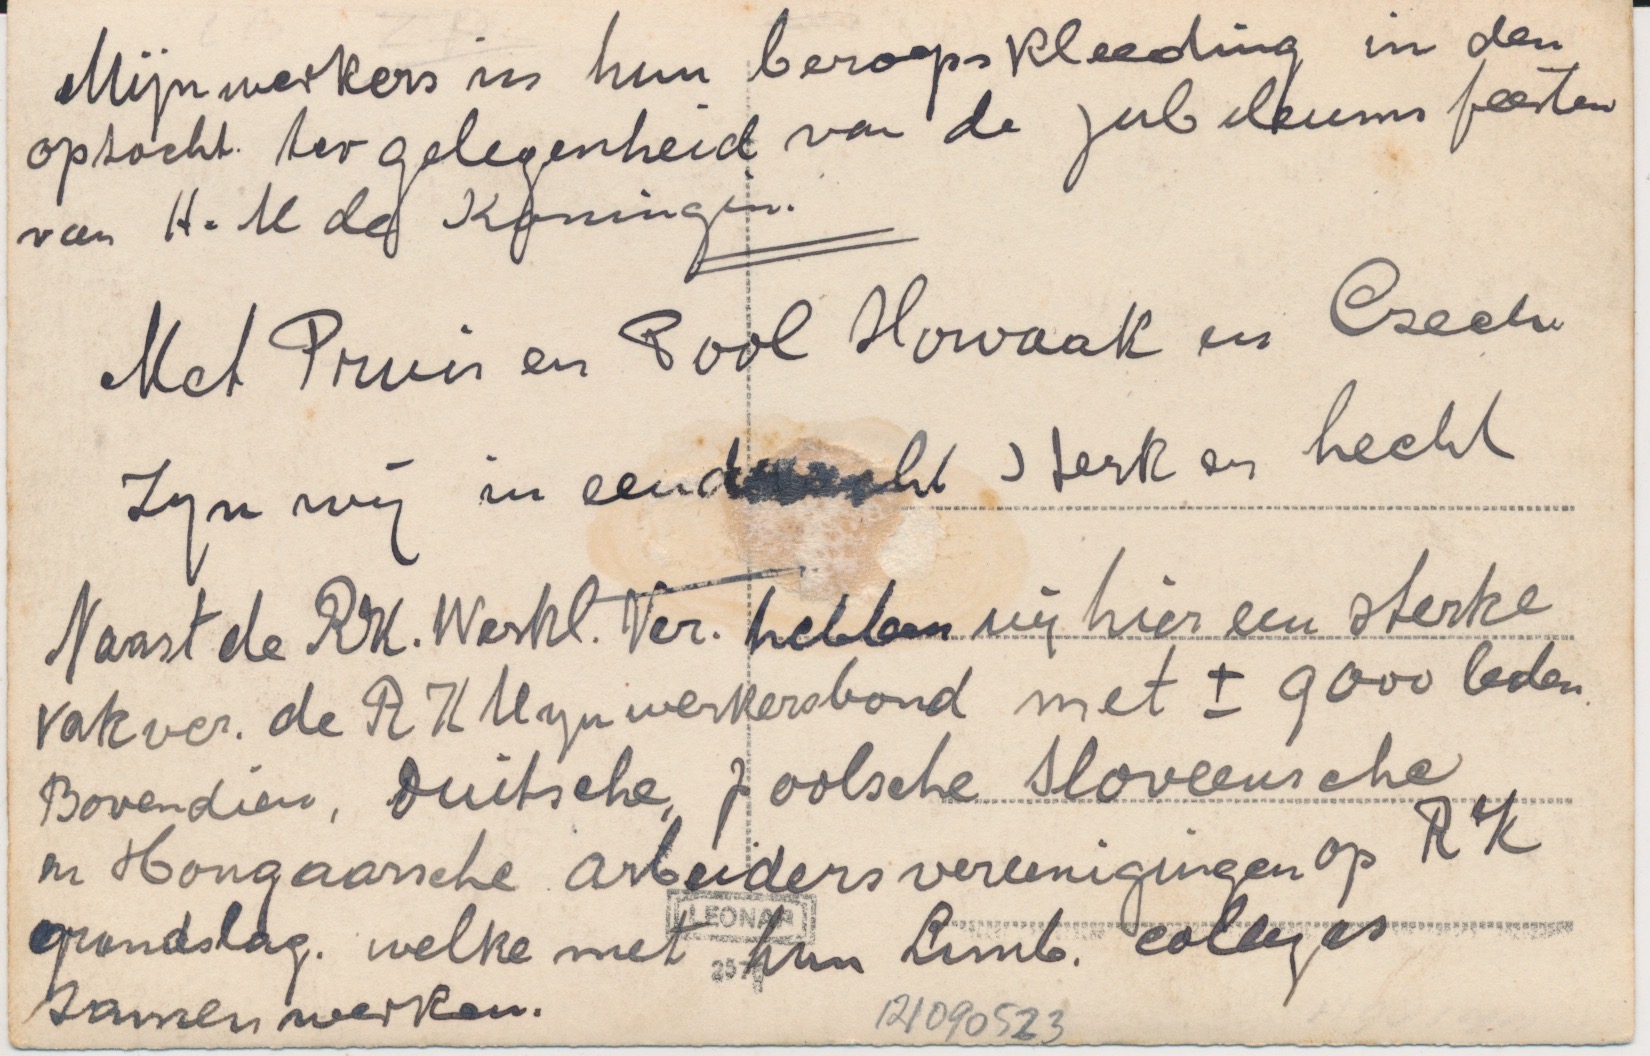 Mijnwerkers in hun beroepskleeding in den
optocht. ter gelegenheid van de jubileums feesten
van H. M de Koningin.
Met Pruis en Pool Slowaak en Czech
Zyn wij in eendracht sterk en hecht
Naast de R.K. Werkl. Ver. hebben wij hier een sterke
vakver. de R K Mynwerkersbond met ± 9000 leden.
Bovendien, Duitsche, Poolsche Sloveensche
en Hongaarsche arbeidersvereenigingen op R K
grondslag. welke met hun Limb. collegas
samenwerken.
LEONAR
257
121090523